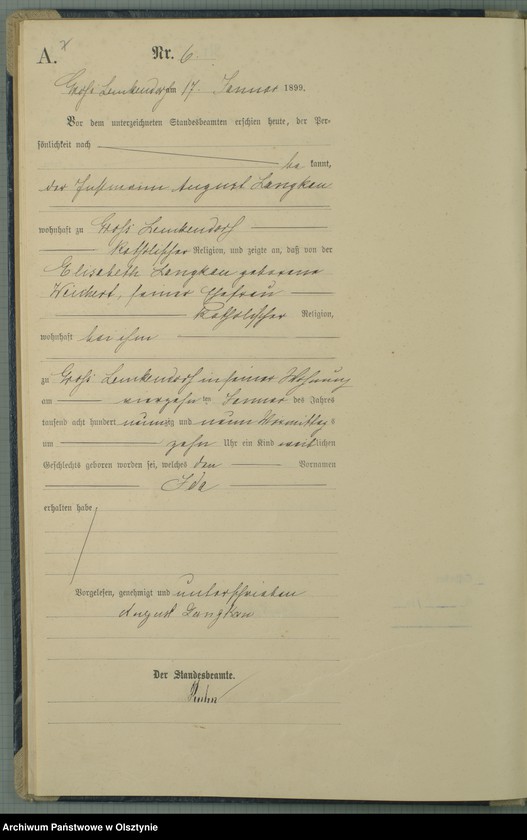 A. x
Nr. 6.
Groß Lemkendorf am 17. Januar 1899.
Vor dem unterzeichneten Standesbeamten erschien heute, der Per-
sönlichkeit nach
be kannt,
der Instmann August Langkau
wohnhaft zu Groß Lemkendorf
katholischer Religion, und zeigte an, daß von der
Elisabeth Langkau geborene
Weichert, seiner Ehefrau
katholischer Religion,
wohnhaft bei ihm
zu Groß Lemkendorf in seiner Wohnung
am vierzehnten Januar des Jahres
tausend acht hundert neunzig und neun Vormittags
um zehn Uhr ein Kind weiblichen
Geschlechts geboren worden sei, welches den Vornamen
Ida
erhalten habe
Vorgelesen, genehmigt und unterschrieben
August Langkau
Der Standesbeamte.
Archiwum Państwowe w Olsztynie